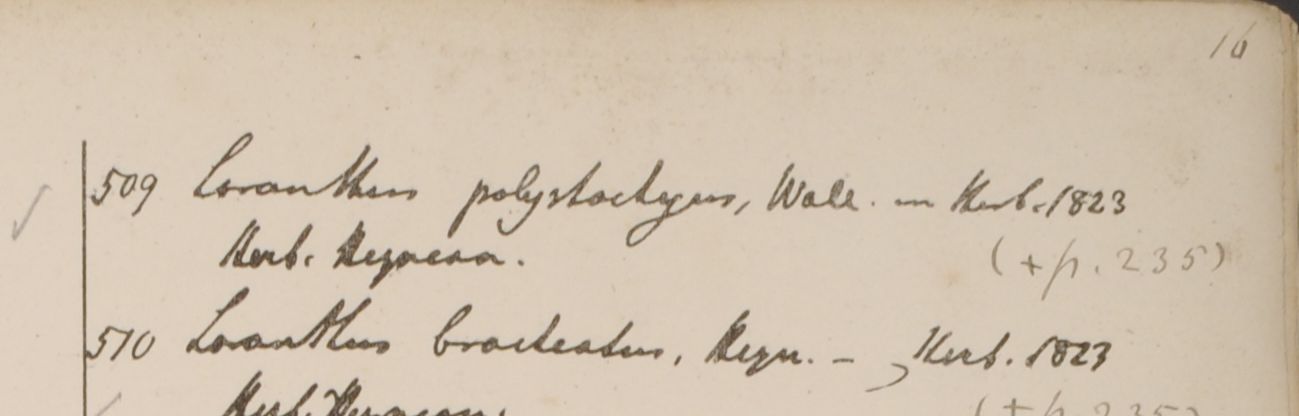 16
509 Loranthus polystachyus, Wall. — Herb. 1823
Herb. Heyneana.
(+p. 235)
510 Loranthus bracteatus, Heyn. — Herb. 1823
Herb. Heyneana.
(+p. 235)